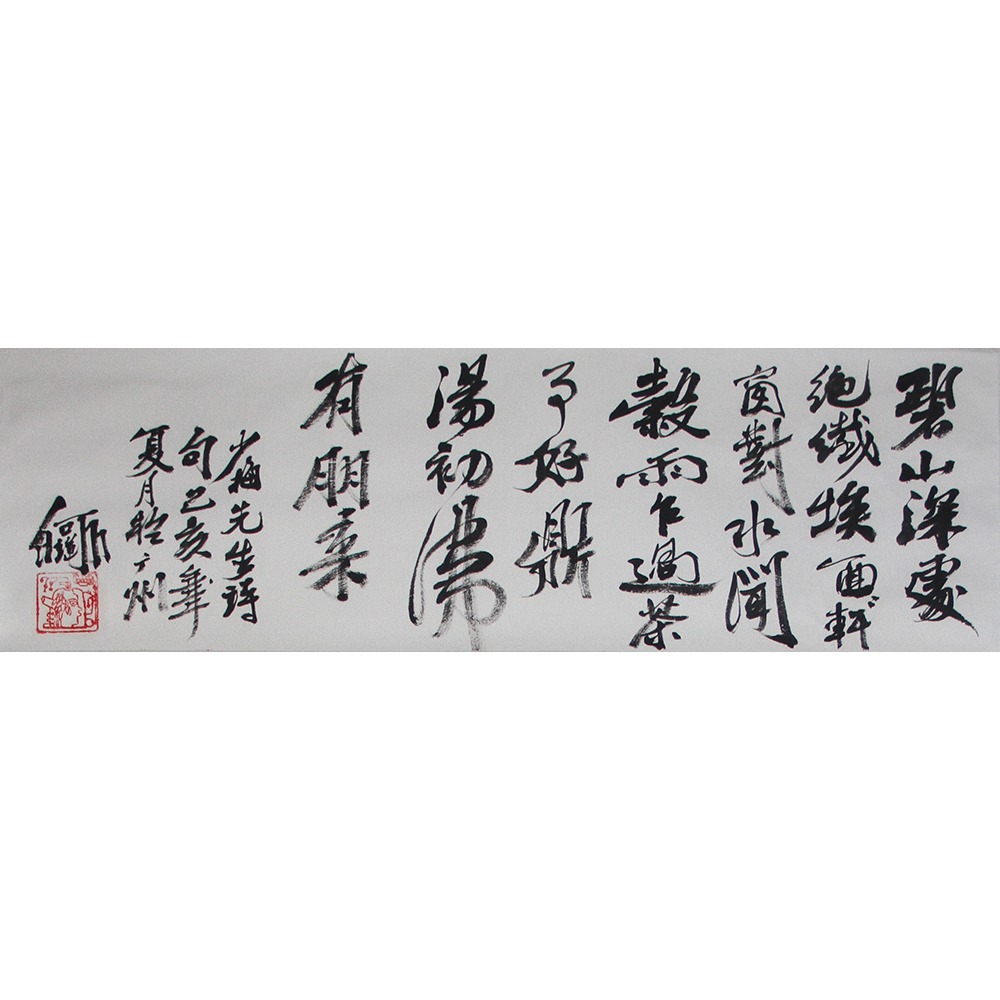 碧山深處
絕纖埃面々軒
窗對水開
穀雨乍過茶
事好鼎
湯初沸
有朋來
少梅先生詩
句己亥年
夏月於广州